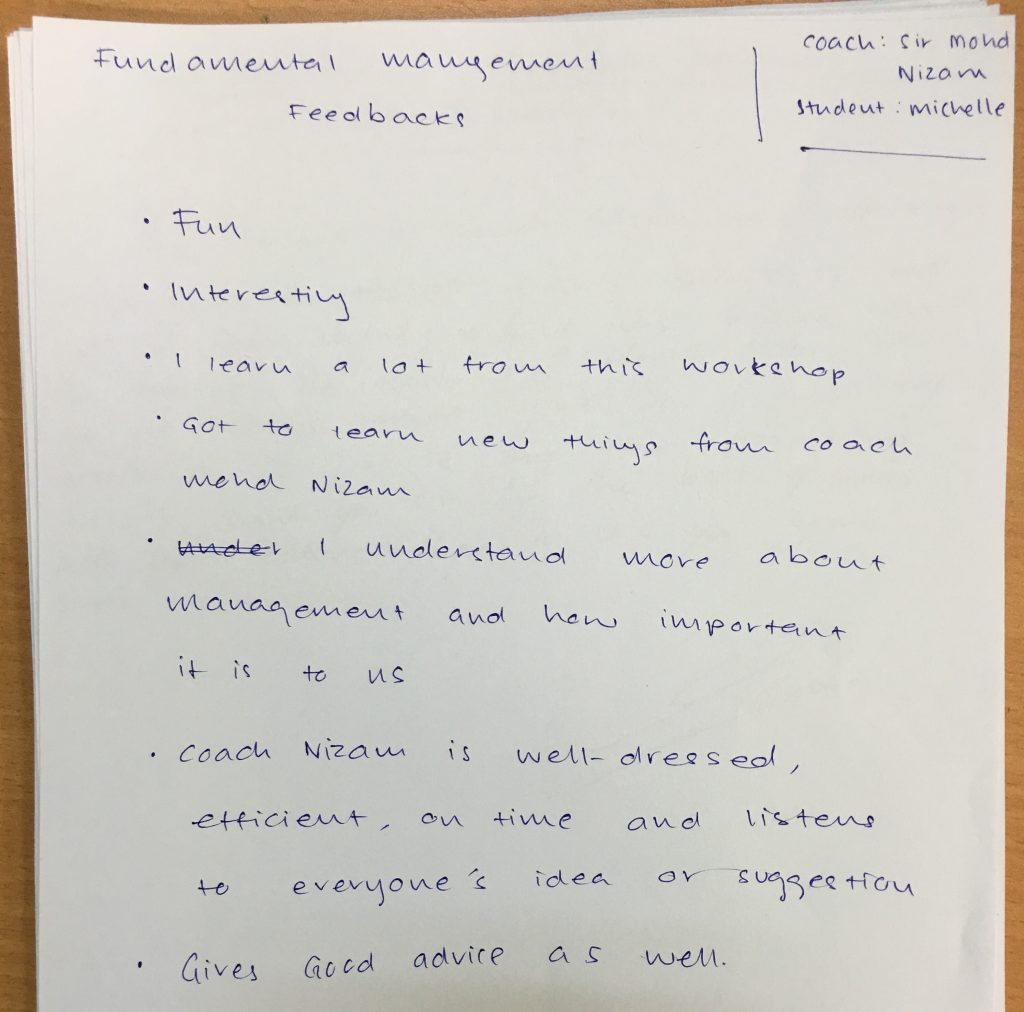 Fundamental mangement
Feedbacks
coach: Sir Mohd
Nizam
Student: Michelle
• Fun
• Interesting
• I learn a lot from this workshop
• Got to learn new things from coach
Mohd Nizam
• under I understand more about
management and how important
it is to us
• Coach Nizam is well-dressed,
efficient, on time and listens
to everyone's idea or suggestion
• Gives Good advice as well.